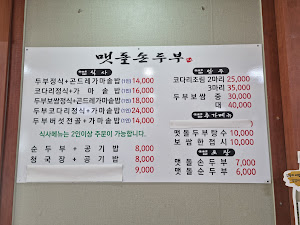 맷돌손두부
식사
두부정식+곤드레가마솥밥(1인) 14,000
코다리정식+가마솥밥(1인) 16,000
두부보쌈정식+곤드레가마솥밥(1인) 18,000
두부코다리정식+가마솥밥(1인) 24,000
두부버섯전골+가마솥밥(1인) 14,000
식사메뉴는 2인이상 주문이 가능합니다.
순두부+공기밥 8,000
청국장+공기밥 8,000
9,000
안주
코다리조림 2마리 25,000
3마리 35,000
두부보쌈 중 30,000
대 40,000
추가메뉴
맷돌두부탕수 10,000
보쌈한접시 10,000
포장
맷돌손두부 7,000
맷돌순두부 6,000